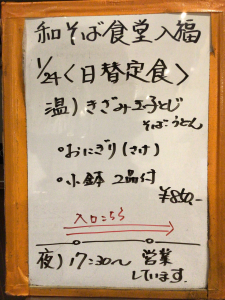 和そば食堂入福
1/24〈日替定食〉
温)きざみ玉子とじ
そば・うどん
・おにぎり(さけ)
・小鉢 2品付
¥850.-
入口こちら
夜)17:30〜 営業
しています.